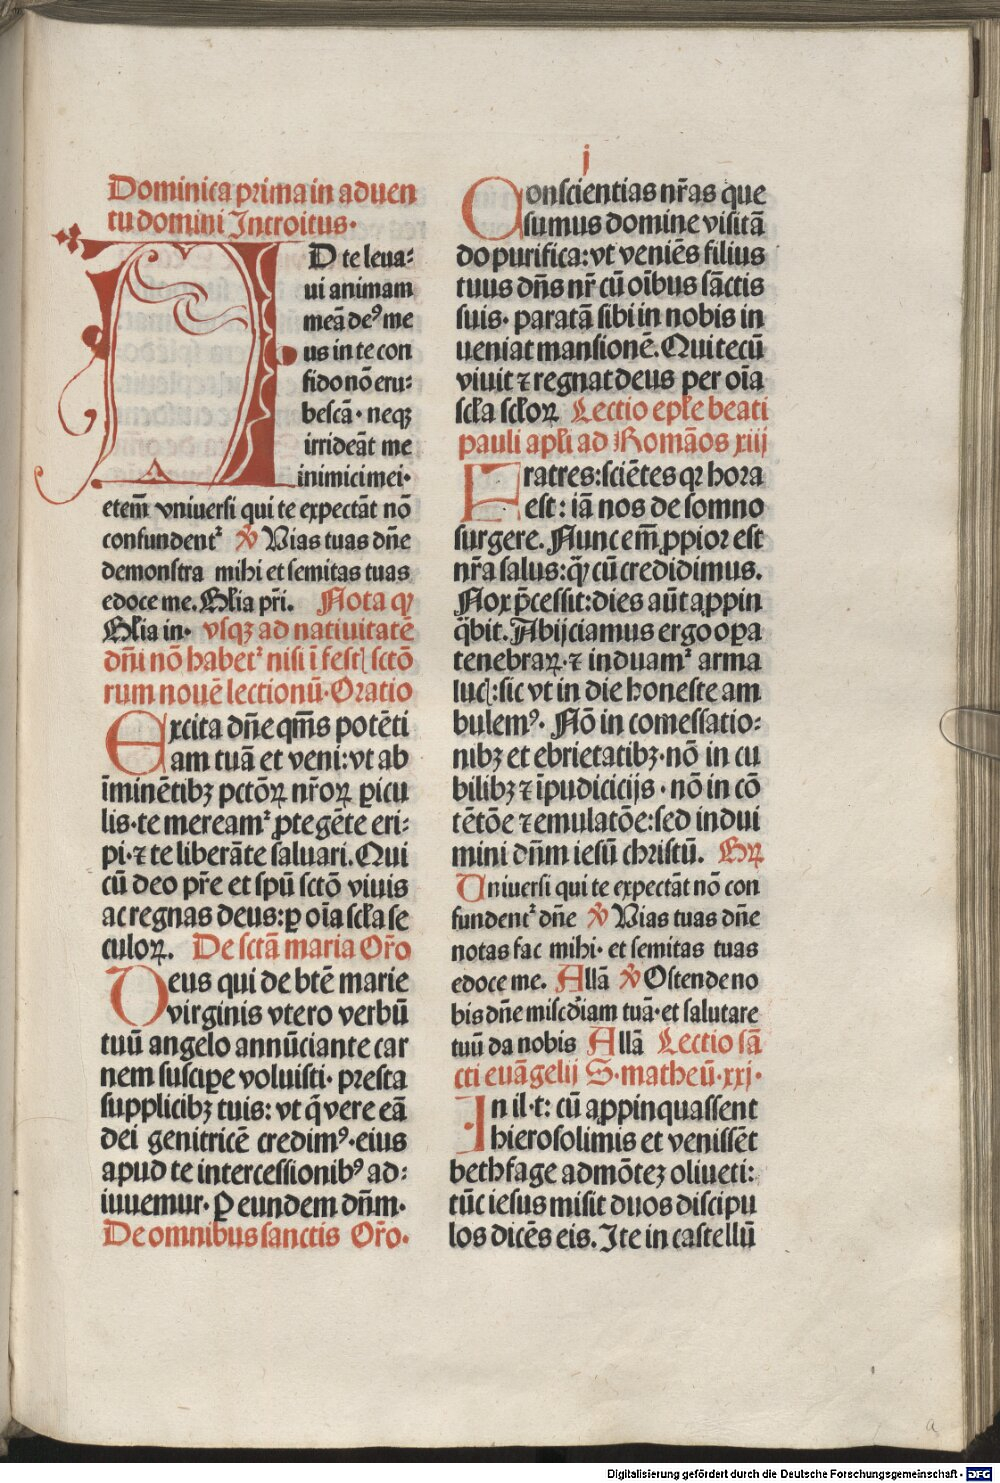 j
Dominica prima in aduen
tu domini Introitus.
AD te leua⸗
ui animam
meā deꝰ me
us in te con
fido nō eru⸗
bescā. neqꝫ
irrideāt me
inimici mei.
etem̄ vniuersi qui te expectāt nō
confundentᷣ ℣ Vias tuas dn̄e
demonstra mihi et semitas tuas
edoce me. Gl̄ia pr̄i. Nota qꝛ
Gl̄ia in. vsqꝫ ad natiuitatē
dn̄i nō habetᷣ nisi ī festꝭ sctō
rum nouē lectionū. Oratio
Excita dn̄e qm̄s potēti
am tuā et veni: vt ab
īminētibꝫ pctōꝝ nr̄oꝝ ꝑicu
lis. te mereamᷣ ꝓtegēte eri⸗
pi. ⁊ te liberāte saluari. Qui
cū deo pr̄e et spū sctō viuis
ac regnas deus: ꝑ oīa scl̄a se
culoꝝ. De sctā maria Or̄o
Deus qui de btē marie
virginis vtero verbū
tuū angelo annūciante car
nem suscipe voluisti. presta
supplicibꝫ tuis: vt q̄ vere eā
dei genitricē credimꝰ. eius
apud te intercessionibꝰ ad⸗
iuuemur. Ꝑ eundem dn̄m.
De omnibus sanctis Or̄o.
Conscientias nr̄as que
sumus domine visitā
do purifica: vt veniēs filius
tuus dn̄s nr̄ cū oībus sāctis
suis. paratā sibi in nobis in
ueniat mansionē. Qui tecū
viuit ⁊ regnat deus per oīa
scl̄a scl̄oꝝ Lectio epl̄e beati
pauli apl̄i ad Romāos xiij
Fratres: sciētes qꝛ hora
est: iā nos de somno
surgere. Nunc em̄ ꝓpior est
nr̄a salus: qᷓꝫ cū credidimus.
Nox p̄cessit: dies aūt aꝓpin
q̄bit. Abijciamus ergo oꝑa
tenebraꝝ. ⁊ induamᷣ arma
lucꝭ: sic vt in die honeste am
bulemꝰ. Nō in comessatio⸗
nibꝫ et ebrietatibꝫ. nō in cu
bilibꝫ ⁊ īpudicicijs. nō in cō
tētōe ⁊ emulatōe: sed indui
mini dn̄m iesū christū. Gꝝ
Uniuersi qui te expectāt nō con
fundentᷣ dn̄e ℣ Vias tuas dn̄e
notas fac mihi. et semitas tuas
edoce me. Allā ℣ Ostende no
bis dn̄e miscd̄iam tuā. et salutare
tuū da nobis Allā Lectio sā
cti euāgelij S. matheū. xxj.
In il. t: cū aꝓpinquassent
hierosolimis et venissēt
bethfage ad mōtez oliueti:
tūc iesus misit duos discipu
los dicēs eis. Ite in castellū
a
Digitalisierung gefördert durch die Deutsche Forschungsgemeinschaft - DFG